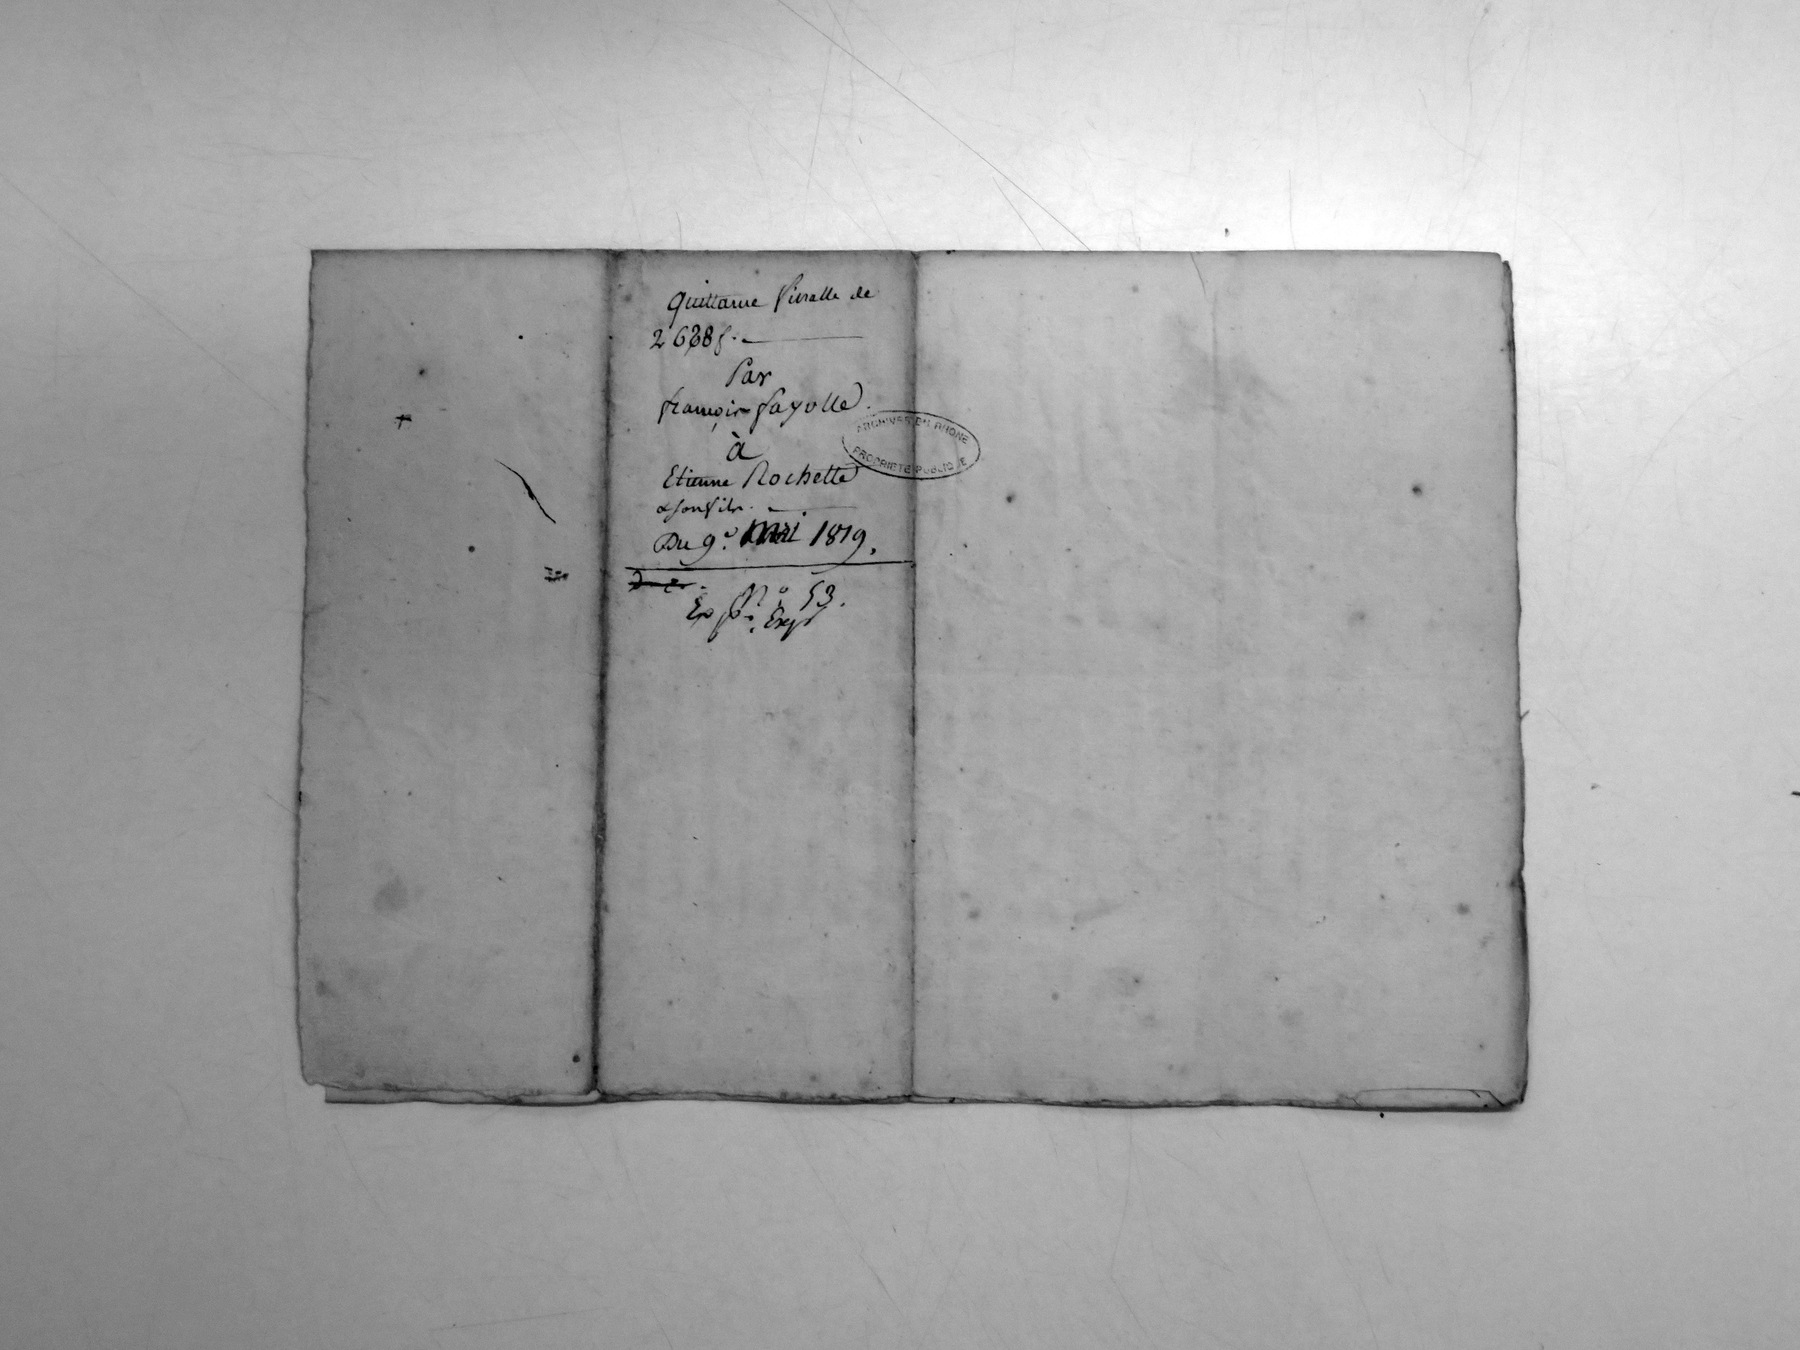 Quittance finalle de
2638f.
Par
françois fayolle.
à
Etienne Rochette
& son fils.
Du 9.e mai 1819.
N.o 53.
ARCHIVES DU RHONE
PROPRIETE PUBLIQUE